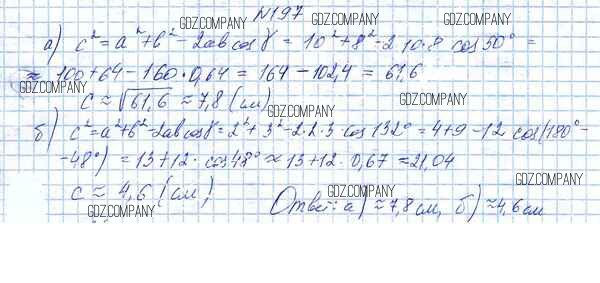 №197
а) c² = a² + b² - 2ab cos γ = 10² + 8² - 2·10·8 cos 50° =
≈ 100 + 64 - 160 · 0,64 = 164 - 102,4 = 61,6
c ≈ √61,6 ≈ 7,8 (см)
б) c² = a² + b² - 2ab cos γ = 2² + 3² - 2·2·3 cos 132° = 4 + 9 - 12 cos(180° -
- 48°) = 13 + 12 · cos 48° ≈ 13 + 12 · 0,67 ≈ 21,04
c ≈ 4,6 (см)
Ответ: а) ≈ 7,8 см, б) ≈ 4,6 см
GDZ.COMPANY
GDZ.COMPANY
GDZ.COMPANY
GDZ.COMPANY
GDZ.COMPANY
GDZ.COMPANY
GDZ.COMPANY
GDZ.COMPANY
GDZ.COMPANY